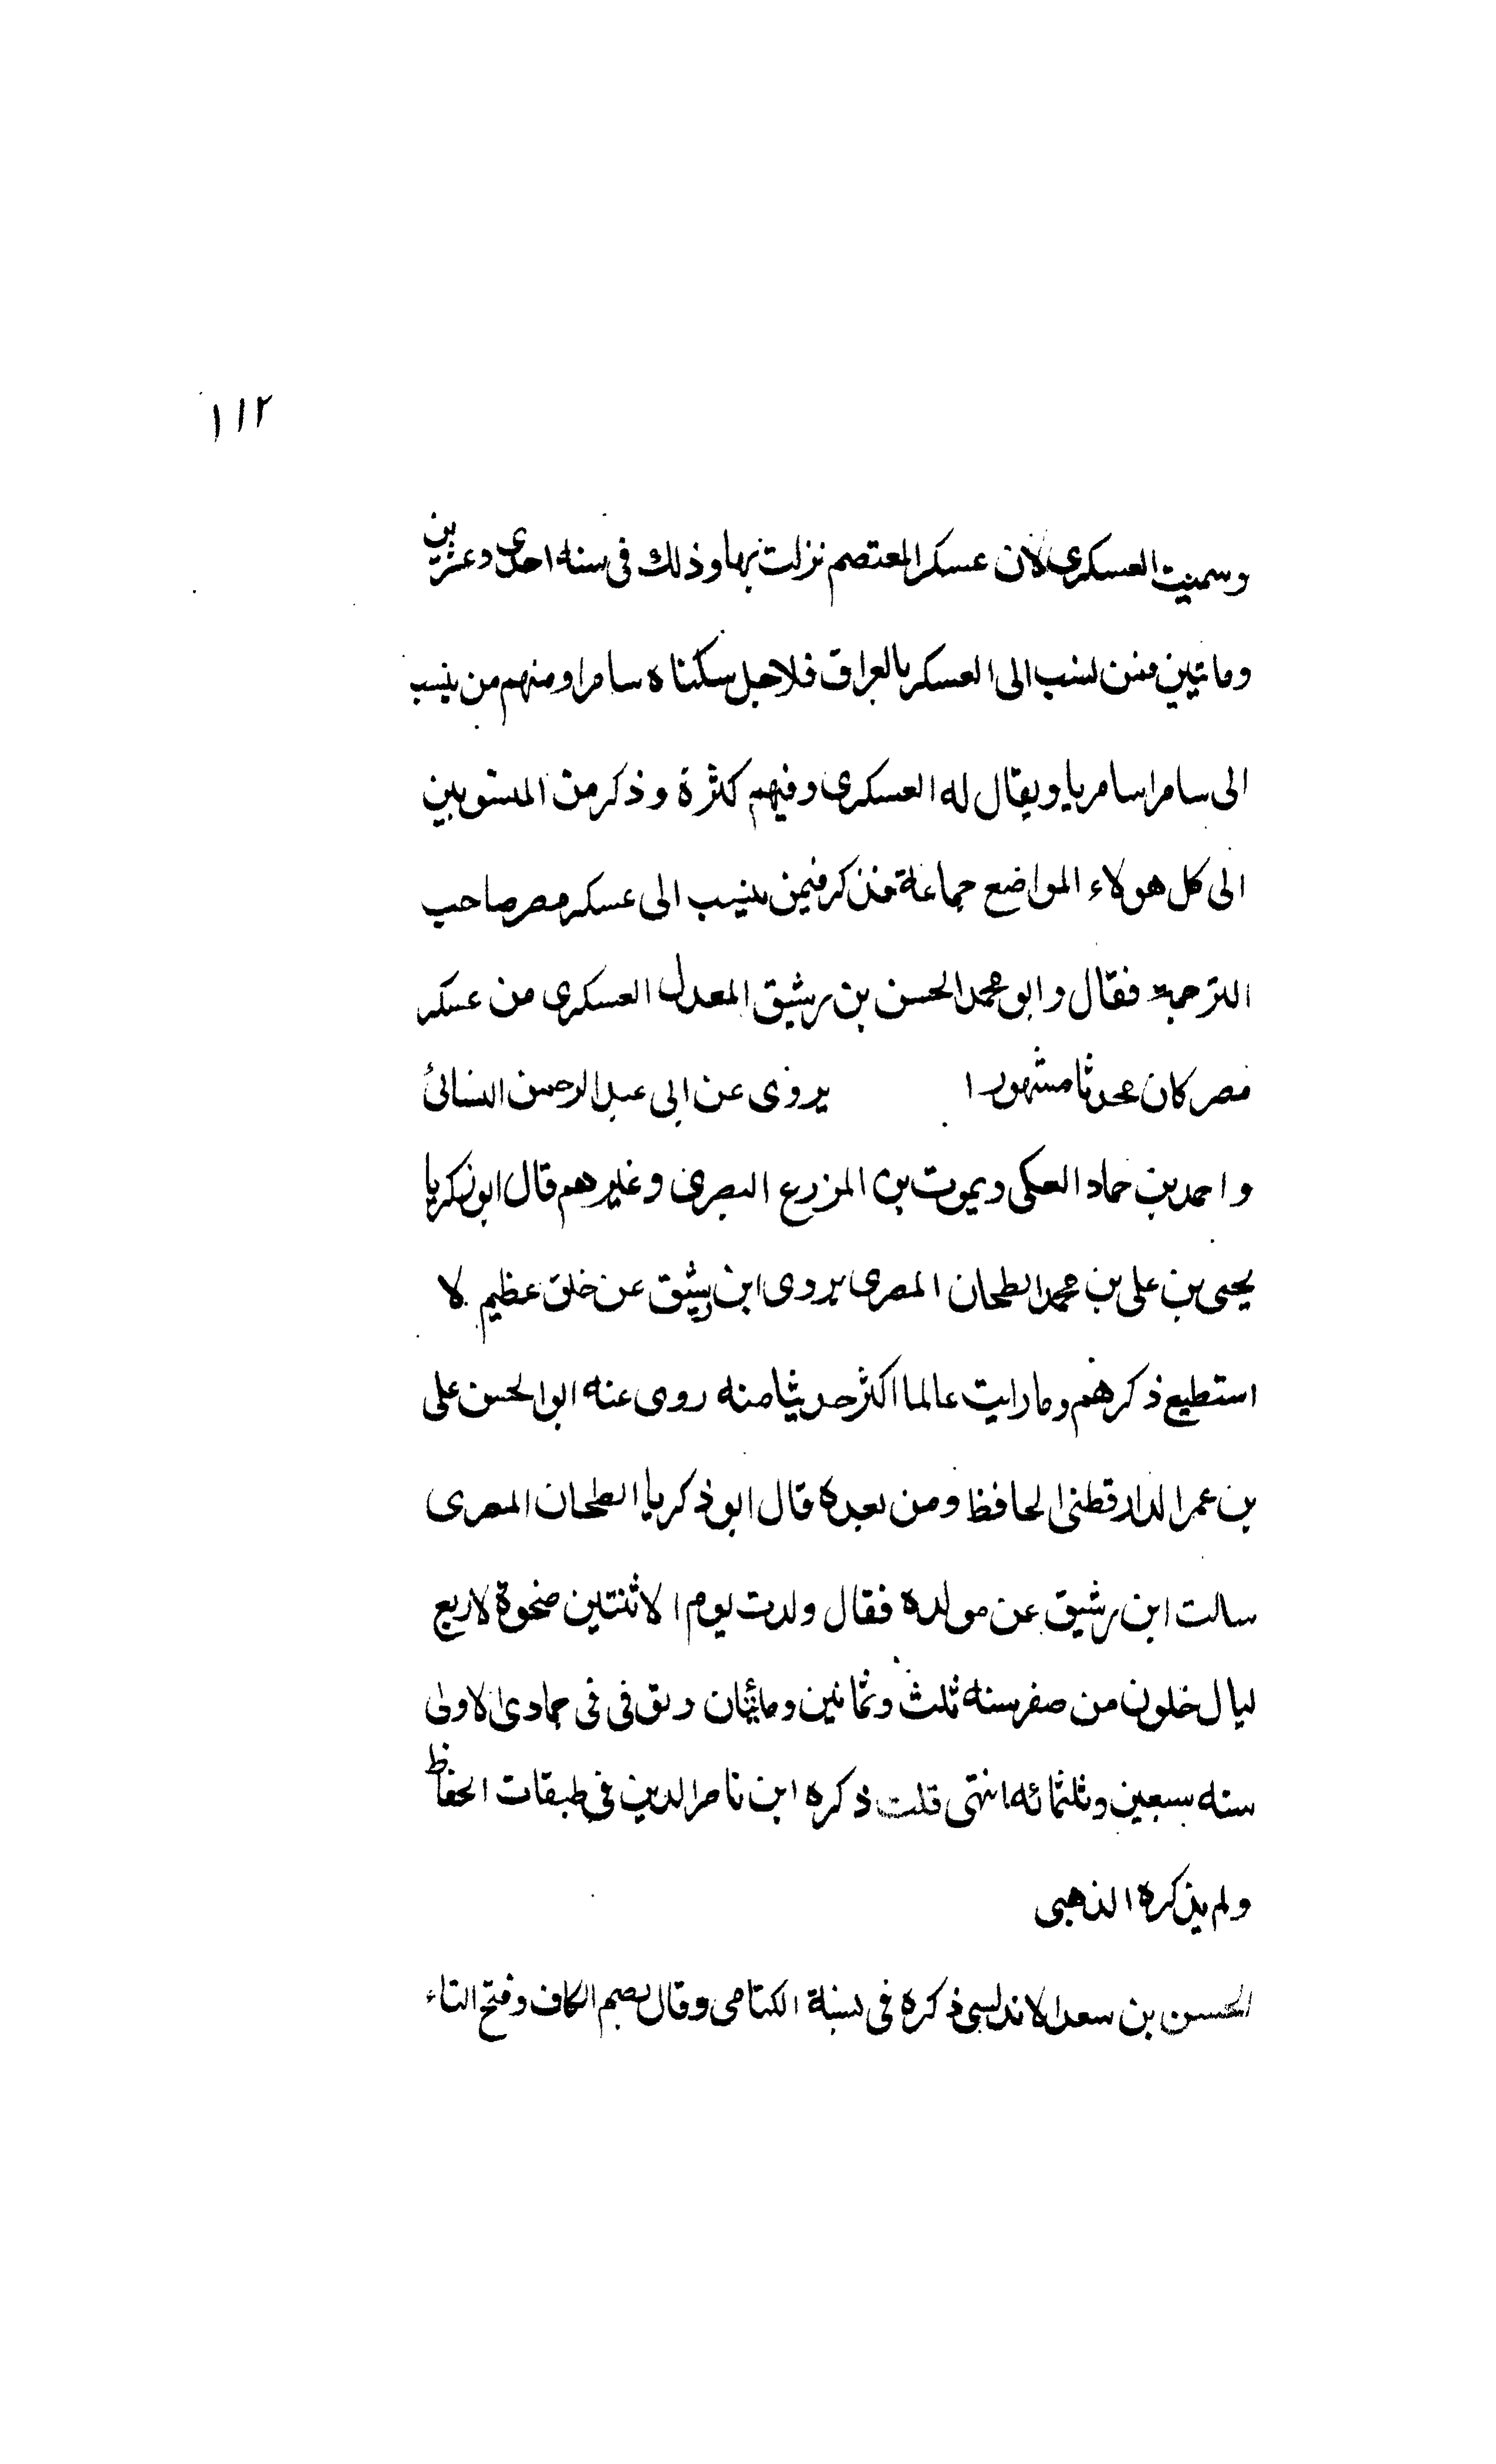 ١١٢
وسميت العسكرى لان عسكر المعتصم نزلت بها وذلك فى سنه احدى وعشرين
ومائتين فمن نسب الى العسكر بالعراق فلاجل سكناه سامرا ومنهم من ينسب
الى سامرا سامريا ويقال له العسكرى وفيهم كثرة وذكر من المنسوبين
الى كل هولاء المواضع جماعة فذكر فيمن ينسب الى عسكر مصر صاحب
الترجمة فقال وابو محمد الحسن بن رشيق المعدل العسكرى من عسكر
مصر كان محدثا مشهورا يروى عن ابى عبد الرحمن النسائى
واحمد بن حماد العكى ويموت بن المزرع البصرى وغيرهم قال ابو زكريا
يحيى بن على بن محمد الطحان المصرى يروى ابن رشيق عن خلق عظيم لا
استطيع ذكرهم وما رايت عالما اكثر حديثا منه روى عنه ابو الحسن على
بن عمر الدارقطنى الحافظ ومن بعده قال ابو ذكريا الطحان المصرى
سالت ابن رشيق عن مولده فقال ولدت يوم الاثنتين ضحوة لاربع
ليال خلون من صفر سنه ثلث وثمانين ومائتان وتوفى فى جمادى الاولى
سنه سبعين وثلثمائه انتهى قلت ذكره ابن ناصر الدين فى طبقات الحفاظ
ولم يذكره الذهبى
الحسن بن سعد الاندلسى ذكره فى نسبة الكتامى وقال بضم الكاف وفتح التاء